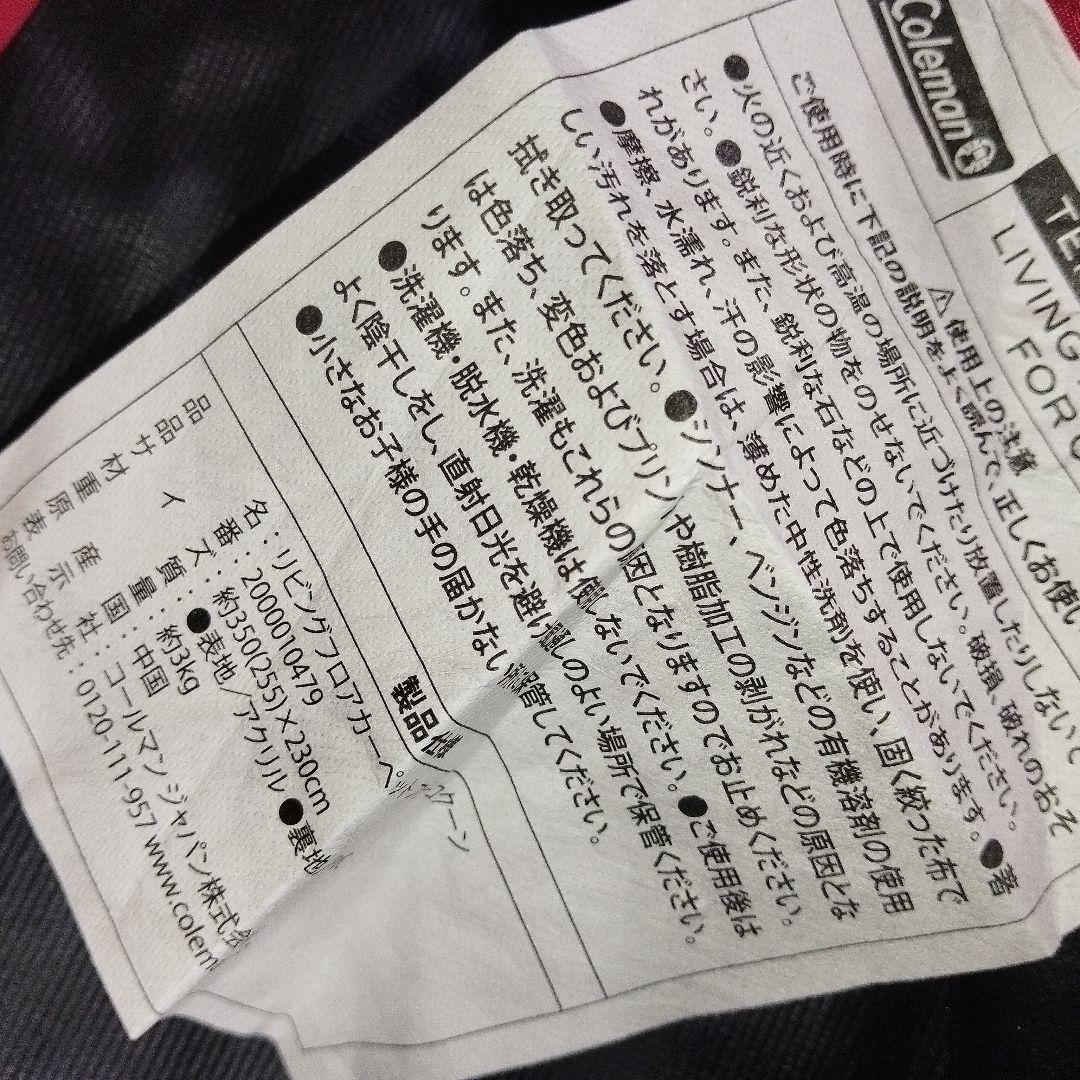 Coleman
LIVING
FOR
⚠ 使用上の注意
ご使用時に下記の説明をよく読んで、正しくお使い
●火の近くおよび高温の場所に近づけたり放置したりしないで
さい。●鋭利な形状の物をのせないでください。破損、破れのおそ
れがあります。また、鋭利な石などの上で使用しないでください。
●摩擦、水濡れ、汗の影響によって色落ちすることがあります。●著
しい汚れを落とす場合は、薄めた中性洗剤を使い、固く絞った布で
拭き取ってください。●シンナー、ベンジンなどの有機溶剤の使用
は色落ち、変色およびプリントや樹脂加工の剥がれなどの原因とな
ります。また、洗濯もこれらの原因となりますのでお止めください。
●洗濯機・脱水機・乾燥機は使用しないでください。●ご使用後は
よく陰干しをし、直射日光を避け のよい場所で保管ください。
●小さなお子様の手の届かない 保管してください。
製品仕様
品名:リビングフロアカーペット
品番:2000010479
サイズ:約350(255)×230cm
材質:●表地/アクリル ●裏地
重量:約3kg
原産国:中国
表示社:コールマン ジャパン株式会
お問い合わせ先:0120-111-957 www.colem